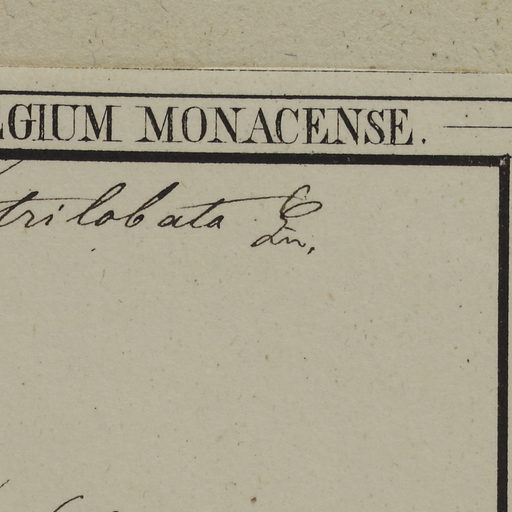 LGIUM MONACENSE.
trilobata
Lin.